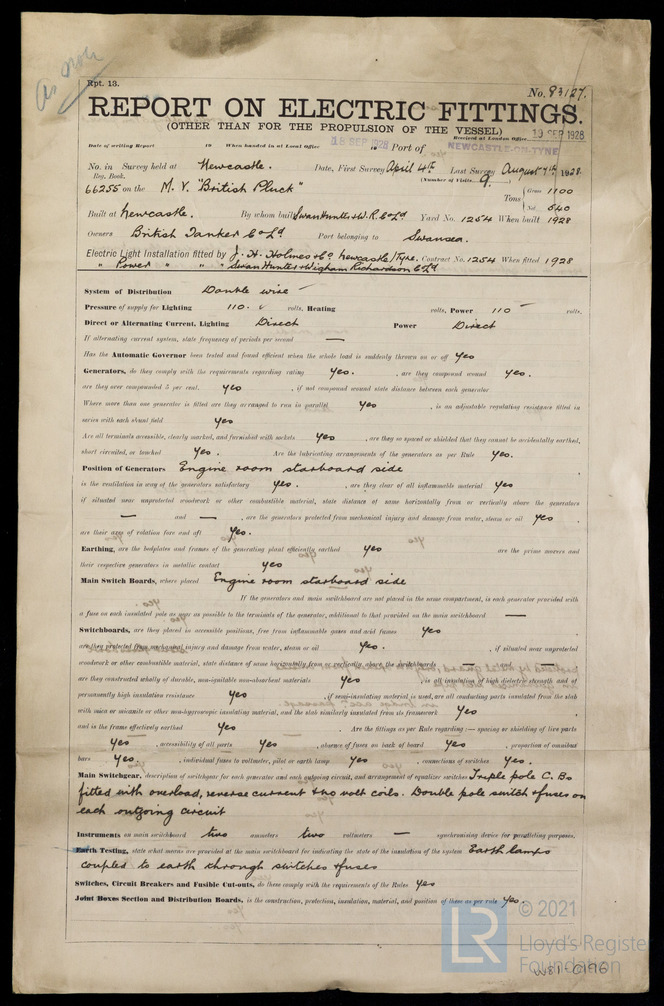 as now
Rpt. 13.
No. 83127.
REPORT ON ELECTRIC FITTINGS.
(OTHER THAN FOR THE PROPULSION OF THE VESSEL)
Received at London Office 19 SEP 1928
Date of writing Report 19 When handed in at Local Office 18 SEP 1928 19 Port of NEWCASTLE-ON-TYNE
No. in Survey held at Newcastle. Date, First Survey April 4th Last Survey August 7th 1928.
Reg. Book. (Number of Visits 9.)
66255 on the M. V. "British Pluck" Tons { Gross 1100
Net 540
Built at Newcastle. By whom built Swan Hunter & W. R. Co Ld Yard No. 1254 When built 1928
Owners British Tanker Co Ld Port belonging to Swansea.
Electric Light Installation fitted by J. H. Holmes & Co Newcastle/Tyne. Contract No. 1254 When fitted 1928
" Power " " " Swan Hunter & Wigham Richardson Co Ld
System of Distribution Double wire
Pressure of supply for Lighting 110 volts, Heating volts, Power 110 volts.
Direct or Alternating Current, Lighting Direct Power Direct
If alternating current system, state frequency of periods per second —
Has the Automatic Governor been tested and found efficient when the whole load is suddenly thrown on or off Yes
Generators, do they comply with the requirements regarding rating Yes. , are they compound wound Yes.
are they over compounded 5 per cent. Yes , if not compound wound state distance between each generator
Where more than one generator is fitted are they arranged to run in parallel Yes , is an adjustable regulating resistance fitted in
series with each shunt field Yes
Are all terminals accessible, clearly marked, and furnished with sockets Yes , are they so spaced or shielded that they cannot be accidentally earthed,
short circuited, or touched Yes. Are the lubricating arrangements of the generators as per Rule Yes.
Position of Generators Engine room starboard side
is the ventilation in way of the generators satisfactory Yes. , are they clear of all inflammable material Yes
if situated near unprotected woodwork or other combustible material, state distance of same horizontally from or vertically above the generators
— and — , are the generators protected from mechanical injury and damage from water, steam or oil Yes ,
are their axes of rotation fore and aft Yes.
Earthing, are the bedplates and frames of the generating plant efficiently earthed Yes are the prime movers and
their respective generators in metallic contact Yes
Main Switch Boards, where placed Engine room starboard side
If the generators and main switchboard are not placed in the same compartment, is each generator provided with
a fuse on each insulated pole as near as possible to the terminals of the generator, additional to that provided on the main switchboard —
Switchboards, are they placed in accessible positions, free from inflammable gases and acid fumes Yes
are they protected from mechanical injury and damage from water, steam or oil Yes. , if situated near unprotected
woodwork or other combustible material, state distance of same horizontally from or vertically above the switchboards — and —
are they constructed wholly of durable, non-ignitable non-absorbent materials Yes , is all insulation of high dielectric strength and of
permanently high insulation resistance Yes , if semi-insulating material is used, are all conducting parts insulated from the slab
with mica or micanite or other non-hygroscopic insulating material, and the slab similarly insulated from its framework Yes
and is the frame effectively earthed Yes . Are the fittings as per Rule regarding :— spacing or shielding of live parts
Yes , accessibility of all parts Yes , absence of fuses on back of board Yes , proportion of omnibus
bars Yes. , individual fuses to voltmeter, pilot or earth lamp Yes , connections of switches Yes.
Main Switchgear, description of switchgear for each generator and each outgoing circuit, and arrangement of equalizer switches Triple pole C. Bs
fitted with overload, reverse current & no volt coils. Double pole switch & fuses on
each outgoing circuit
Instruments on main switchboard two ammeters two voltmeters — synchronising device for paralleling purposes.
Earth Testing, state what means are provided at the main switchboard for indicating the state of the insulation of the system Earth lamps
coupled to earth through switches & fuses
Switches, Circuit Breakers and Fusible Cut-outs, do these comply with the requirements of the Rules Yes
Joint Boxes Section and Distribution Boards, is the construction, protection, insulation, material, and position of these as per rule Yes.
LR
© 2021
Lloyd's Register
Foundation
W81-0196